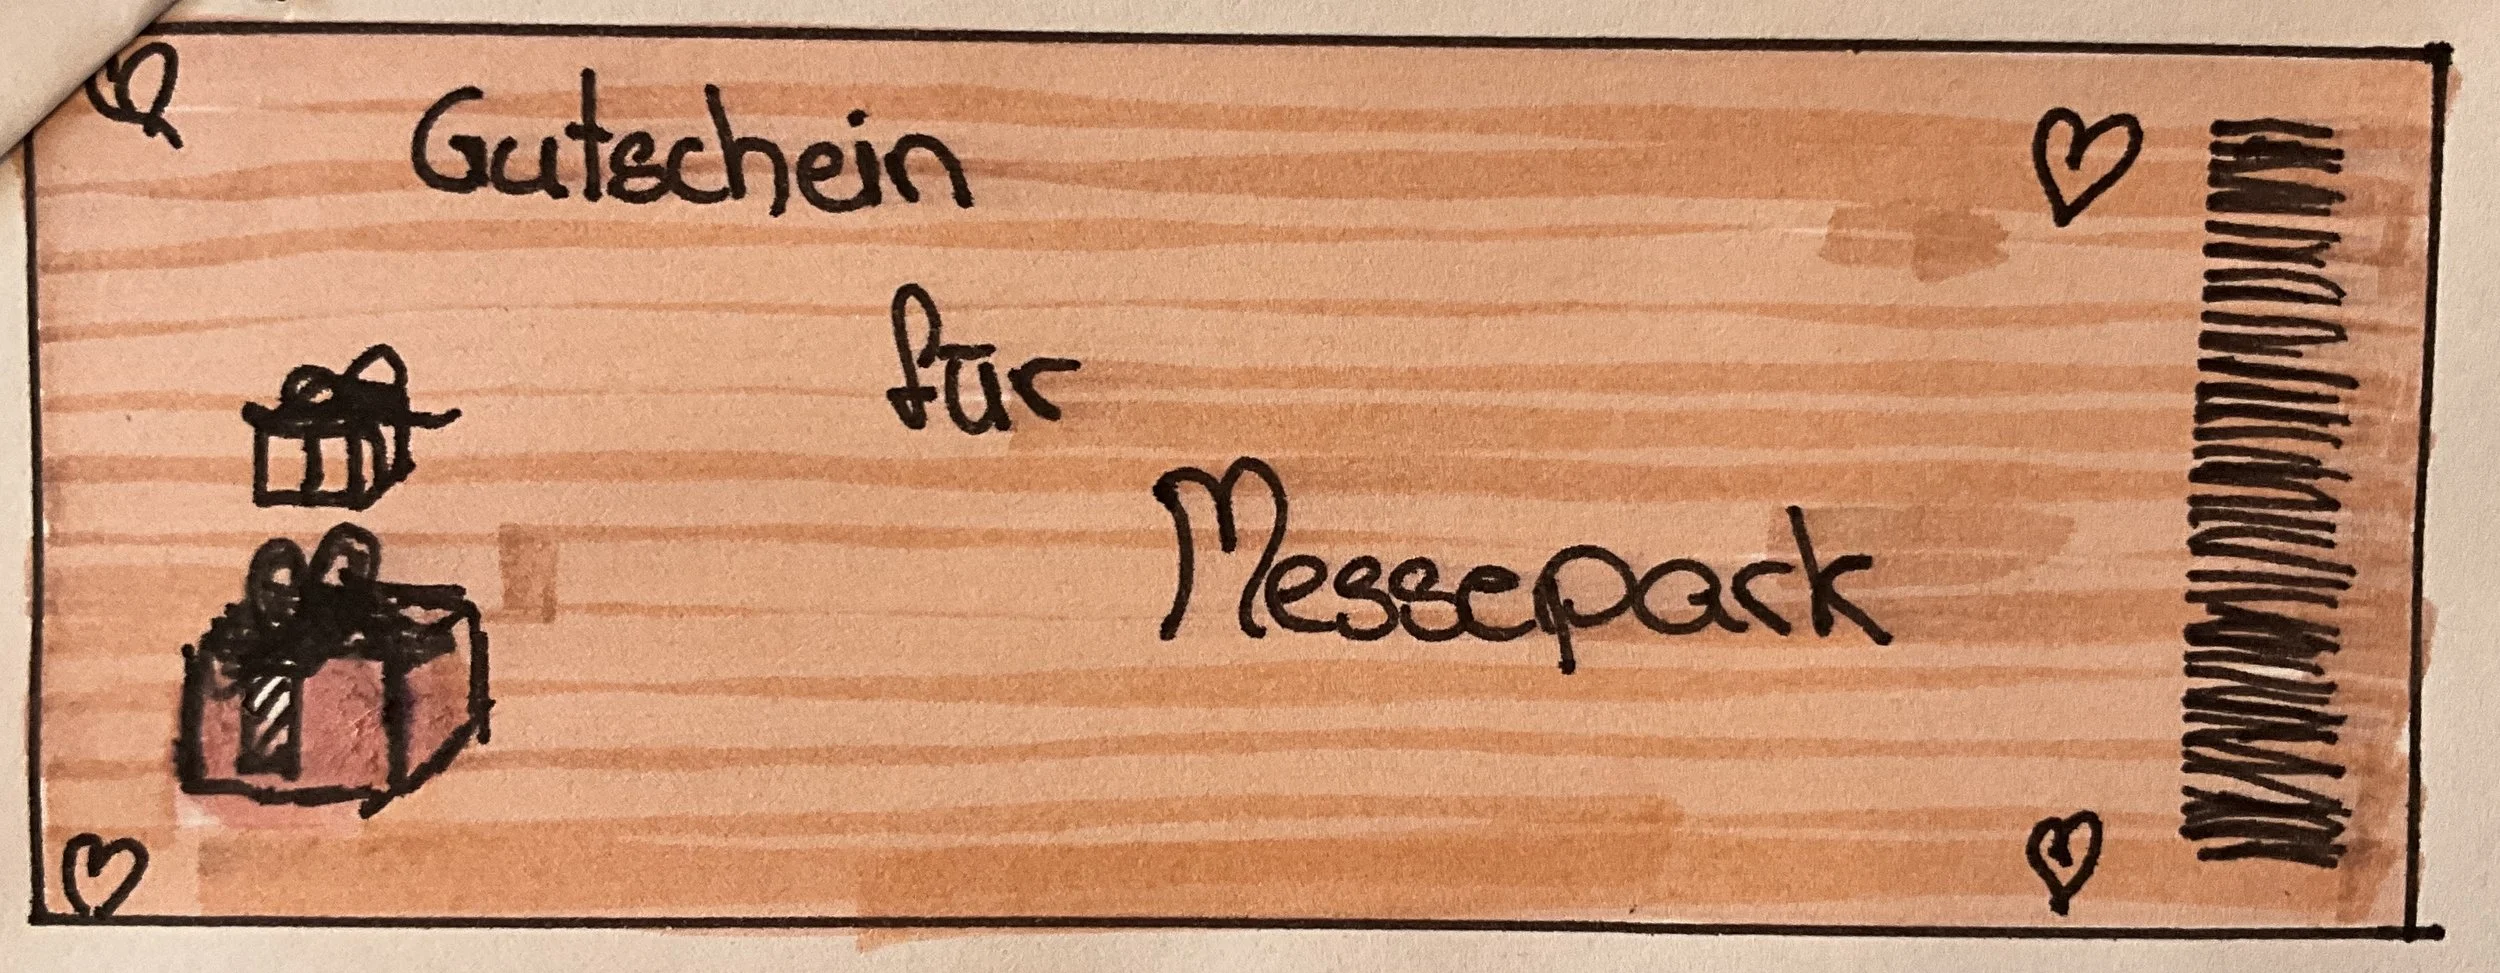 Gutschein
für
Messepark